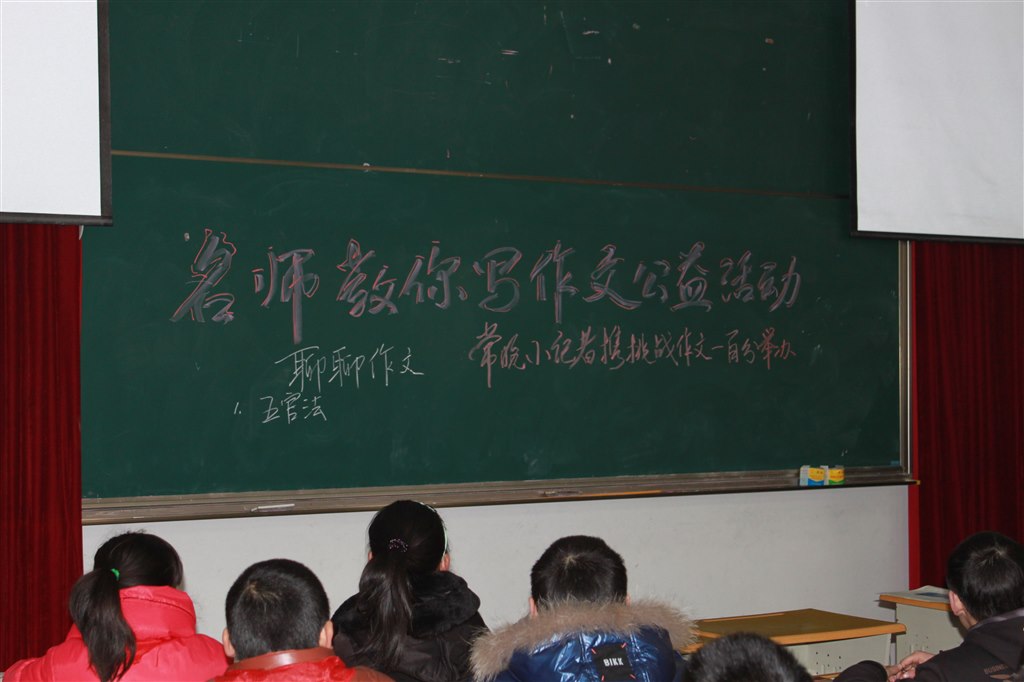 名师教你写作文公益活动
常晚小记者携挑战作文一百分举办
聊聊作文
1. 五官法
BIKK